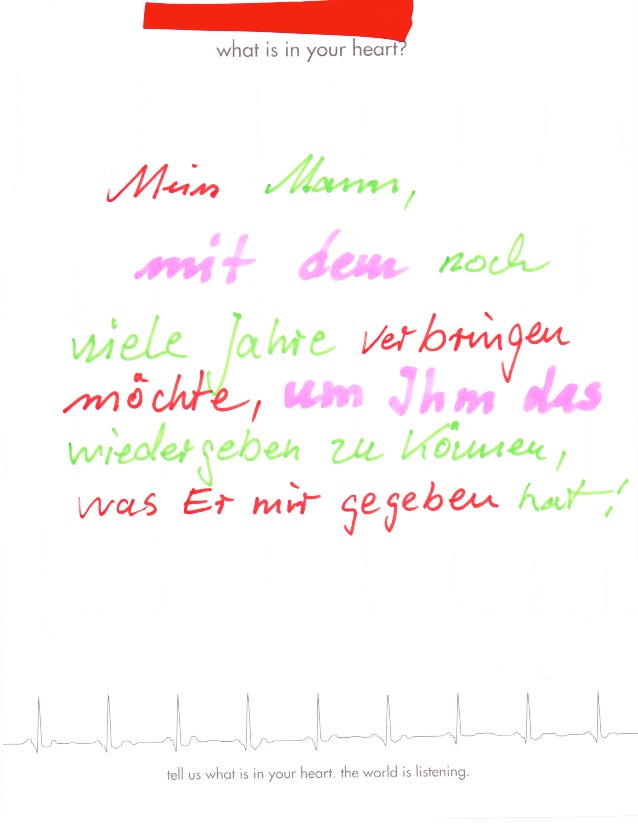 what is in your heart?
Mein Mann,
mit dem noch
viele Jahre verbringen
möchte, um Ihm das
wiedergeben zu können,
was Er mir gegeben hat!
tell us what is in your heart. the world is listening.